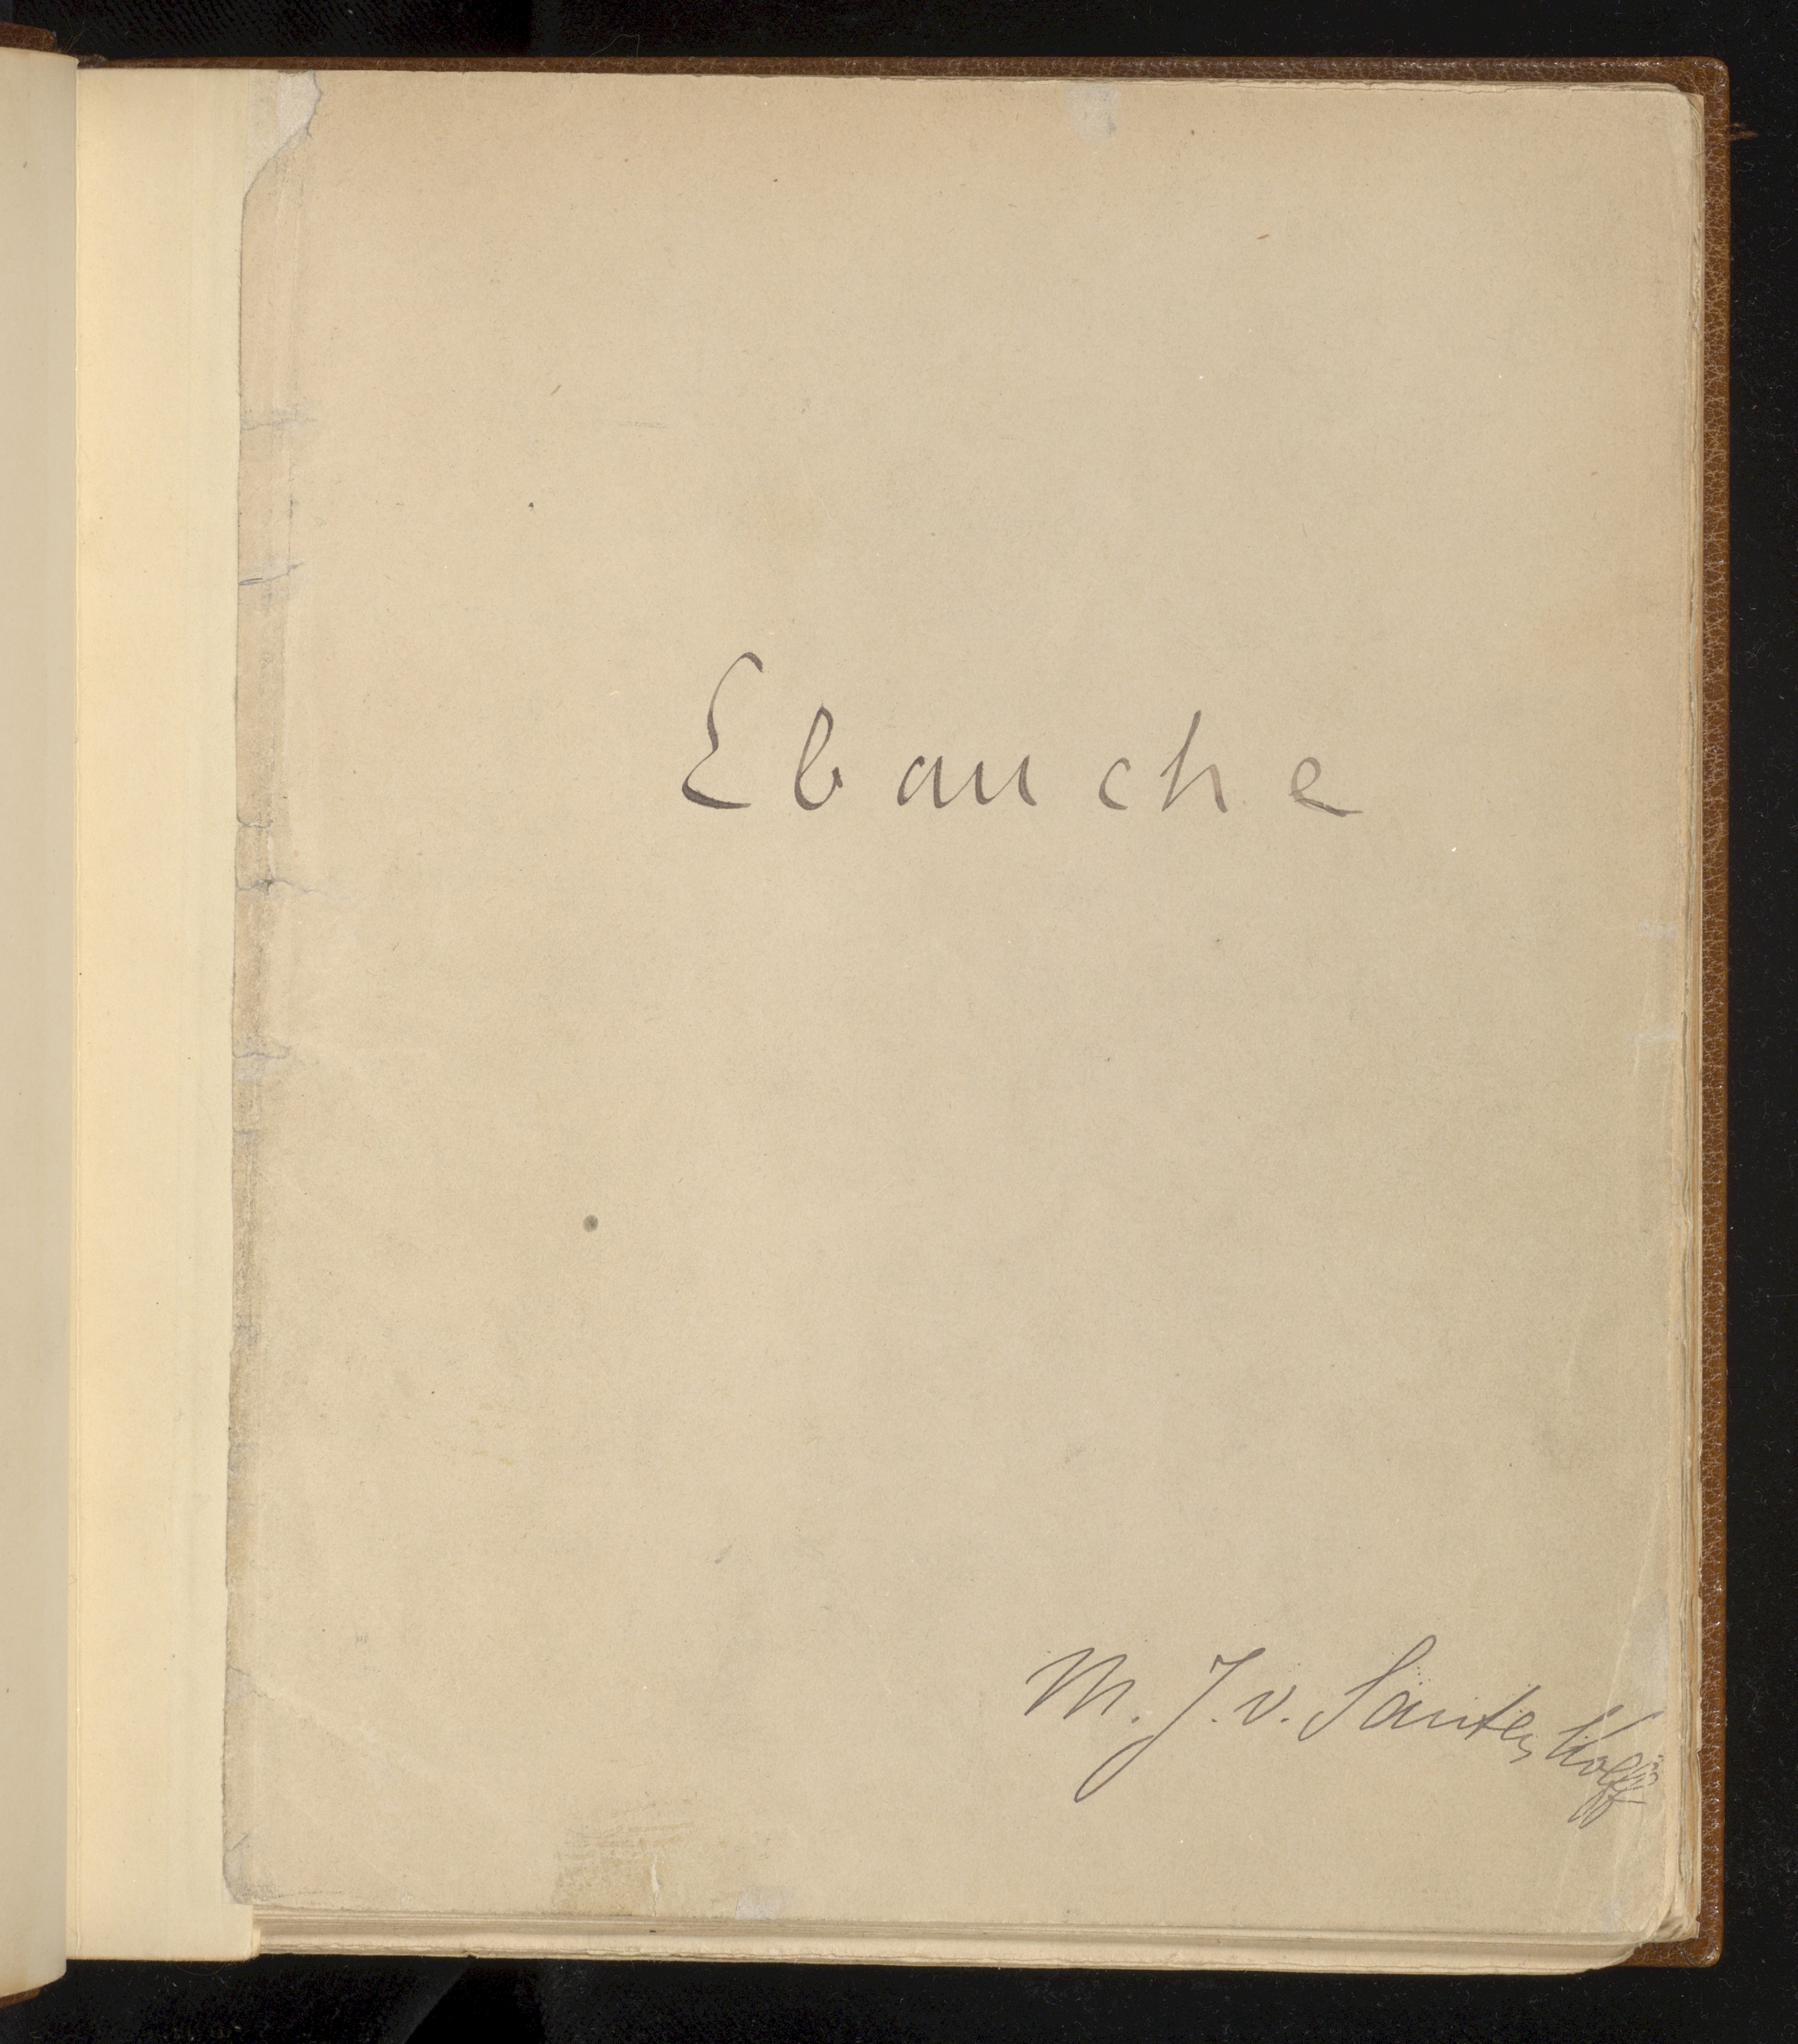 Ebauche
M. J. v. Santen Kolff